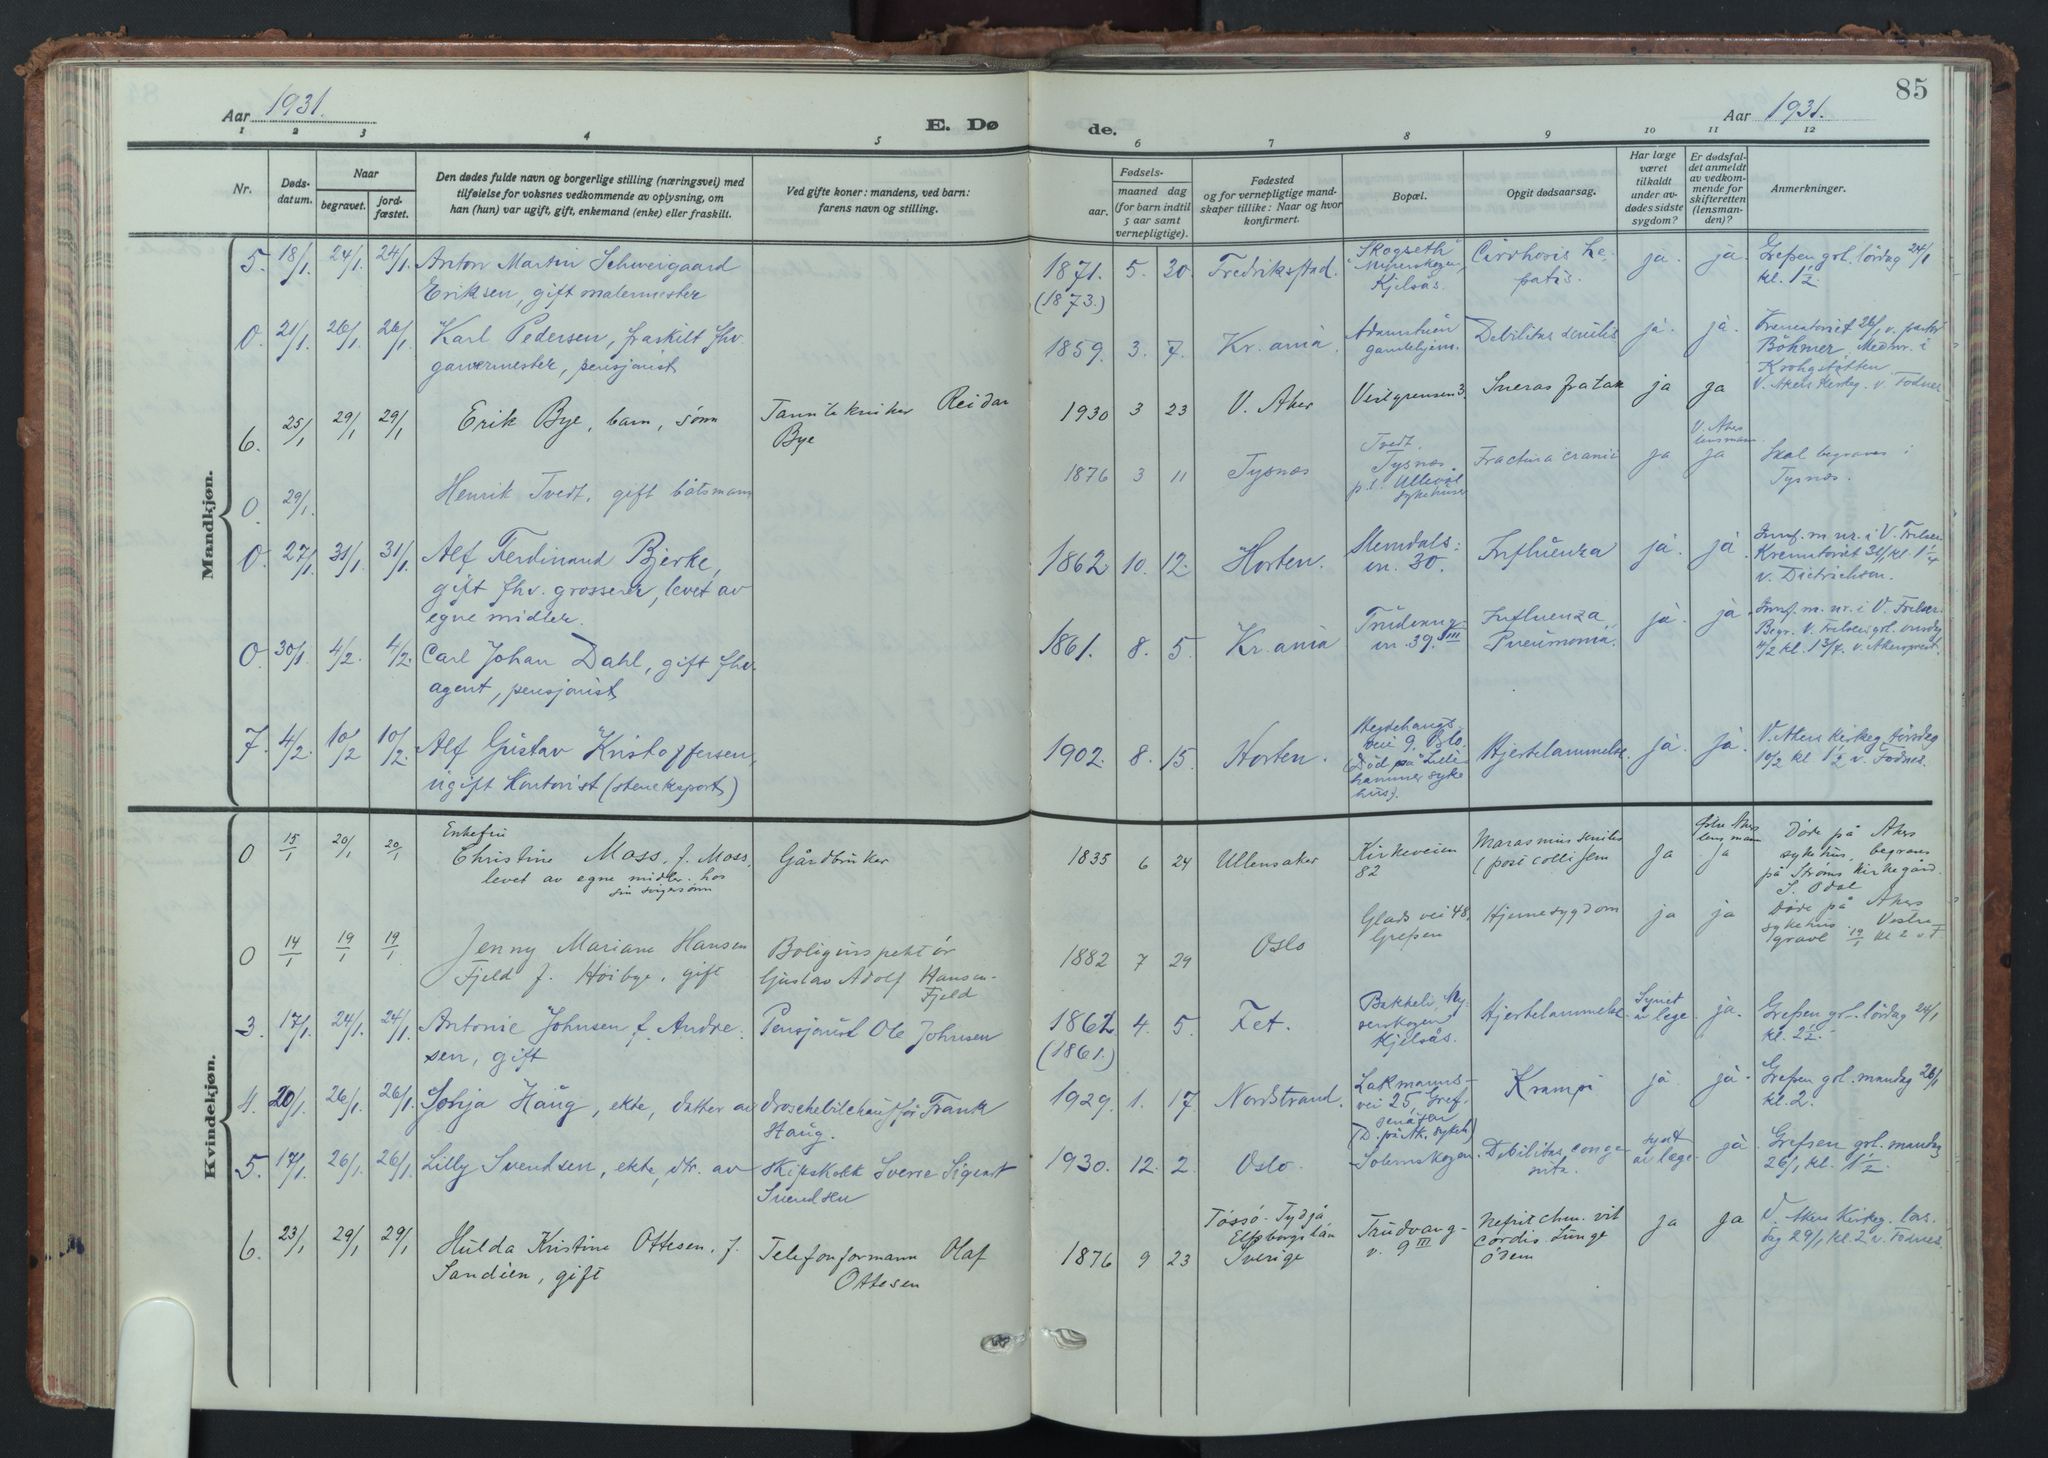 85
Aar 1931.
E. Dø
de.
Aar 1931.
1 2 3 4 5 6 7 8 9 10 11 12
Nr.
Døds-
datum.
Naar
begravet.
jord-
fæstet.
Den dødes fulde navn og borgerlige stilling (næringsvei) med
tilføielse for voksnes vedkommende av oplysning, om
han (hun) var ugift, gift, enkemand (enke) eller fraskilt.
Ved gifte koner: mandens, ved barn:
farens navn og stilling.
Fødsels-
aar.
maaned dag
(for barn indtil
5 aar samt
vernepligtige).
Fødested
og for vernepligtige mand-
skaper tillike: Naar og hvor
konfirmert.
Bopæl.
Opgit dødsaarsag.
Har læge
været
tilkaldt
under av-
dødes sidste
sygdom?
Er dødsfal-
det anmeldt
av vedkom-
mende for
skifteretten
(lensman-
den)?
Anmerkninger.
Mandkjøn.
5. 18/1. 24/1. 24/1. Anton Martin Schweigaard
Eriksen, gift malermester
1871. 5. 30. Fredriksstad.
(1873.)
Skogseth
Kjelsås.
Cirrhosis he-
patis.
ja. ja.
Grefsen grl. lördag 24/1
kl. 1½
0. 21/1. 26/1. 26/1. Karl Pedersen, fraskilt fhv.
garvermester, pensjonist
1859. 3. 7. Kr.ania.
Adamstuen
gamlehjem.
Debilitas senilis
ja. ja.
Krematoriet 26/1, v. pastor
Böhmer. Mednr. i
Krohgstötten
6. 25/1 29/1 29/1 Erik Bye, barn, sönn
Tanntekniker Reidar
Bye
1930 3 23 V. Aker
ja ja
V. Akers Kirkeg. v. Fodnes
0. 29/1. Henrik Tvedt, gift båtsmann
1876 3 11 Tysnæs
Tvedt.
Tysnæs.
p.t. Ullevål
sykehuset
Fractura cranii
ja
V. Akers
lensmann
ja
Skal begraves i
Tysnæs.
0. 27/1. 31/1. 31/1. Alf Ferdinand Bjerke,
gift fhv. grosserer, levet av
egne midler.
1862 10. 12. Horten.
Slemdals-
vn. 30.
Influenza
ja. ja.
Innf. m nr. i V. Frelser
Krematoriet 31/1 kl. 1¼
v. Dietrichson.
0. 30/1. 4/2. 4/2. Carl Johan Dahl, gift fhv.
agent, pensjonist
1861. 8. 5. Kr.ania
Trudvang-
vn 39. III
Influenza
Pneumonia.
ja. ja.
Innf. m. nr. i V. Frelser.
Begr. V. Frelsers grl. onsdag
4/2 kl. 13/4. v. Akersprest.
7. 4/2. 10/2 10/2. Alf Gustav Kristoffersen,
ugift Kontorist (steneksport)
1902. 8. 15. Horten.
vei 9, Oslo.
(Död på Lille-
hammer syke
hus).
Hjertelammelse
ja. ja.
V. Akers kirkeg tirsdag
10/2 kl 1½ v. Fodnes.
Kvindekjøn.
0 15/1 20/1 20/1
Enkefru
Christine Moss, f. Moss,
levet av egne midler. hos
sin svigersønn
Gårdbruker
1835 6 24 Ullensaker
Kirkeveien
82
Marasmus senilis
(post colli fem
ja
Östre Akers
lensmann
ja
Döde på Akers
sykehus, begraves
på Ströms Kirkegård.
S. Odal
0 14/1 19/1 19/1 Jenny Mariane Hansen
Fjeld f. Höibye, gift
Boliginspektör
Gustav Adolf Hansen-
Fjeld
1882 7 29 Oslo
Glads vei 48,
Grefsen
Hjernesygdom
ja ja
Döde på Akers
sykehus. Vestre
gravl 19/1 kl 2 v. F
3. 17/1. 24/1. 24/1. Antonie Johnsen f. Andre-
sen, gift
Pensjonist Ole Johnsen
1862 4. 5. Fet.
(1861.)
Bakkeli, My-
rerskogen
Kjelsås.
Hjertelammelse
Synet
av lege
ja.
Grefsen grl. lördag 24/1
kl. 2½.
4. 20/1. 26/1. 26/1. Sonja Haug, ekte, datter av
droschebilchauffør Frank
Haug.
1929. 1. 17 Nordstrand.
Lakmanns-
vei 25, Gref-
senåsen
(D. på Ak. sykeh.)
Krampe
ja. ja.
Grefsen grl. mandag 26/1
kl. 2.
5. 17/1. 26/1. 26/1. Lilly Svendsen, ekte, dtr. av
skipskokk Sverre Sigent
Svendsen
1930. 12. 2 Oslo.
Solemskogen.
Debilitas conge-
nita.
synt
av lege
ja
Grefsen grl. mandag
26/1 kl. 1½.
6. 23/1 29/1 29/1 Hulda Kristine Ottesen, f.
Sandien, gift
Telefonformann Olaf
Ottesen
1876 9 23
Tössö. Tydjå
Elfsborgs län
Sverige
Trudvang-
v. 9 III
Nefrit chr. vit
cordis Lunge
ödem
ja ja
V. Akers Kirkeg. tors-
dag 29/1 kl. 2 v. Fodnes.